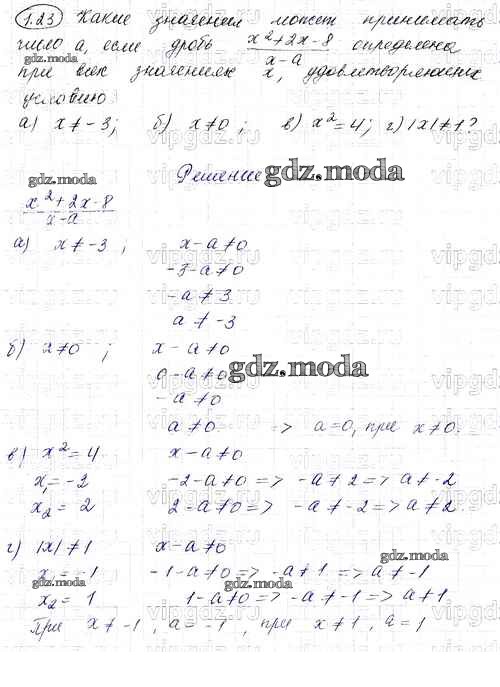 1.23 Какие значения может принимать
число a, если дробь x²+2x-8/x-a определена
gdz.moda
при всех значениях x, удовлетворяющих
условию
а) x≠-3; б) x≠0; в) x²=4; г) |x|≠1?
gdz.moda Решение gdz.moda
x²+2x-8/x-a
а) x≠-3; x-a≠0
-3-a≠0
-a≠3
a≠-3
б) x≠0; x-a≠0
0-a≠0 gdz.moda
-a≠0
a≠0 => a=0, при x≠0.
в) x²=4 x-a≠0
x₁=-2 -2-a≠0=> -a≠2=> a≠-2
x₂=2 2-a≠0=> -a≠-2=> a≠2
г) |x|≠1 x-a≠0
gdz.moda
x₁=-1 -1-a≠0=> -a≠1 => a≠-1
gdz.moda
x₂=1 1-a≠0=> -a≠-1=> a≠1
gdz.moda
При x≠-1, a=-1, при x≠1, a=1